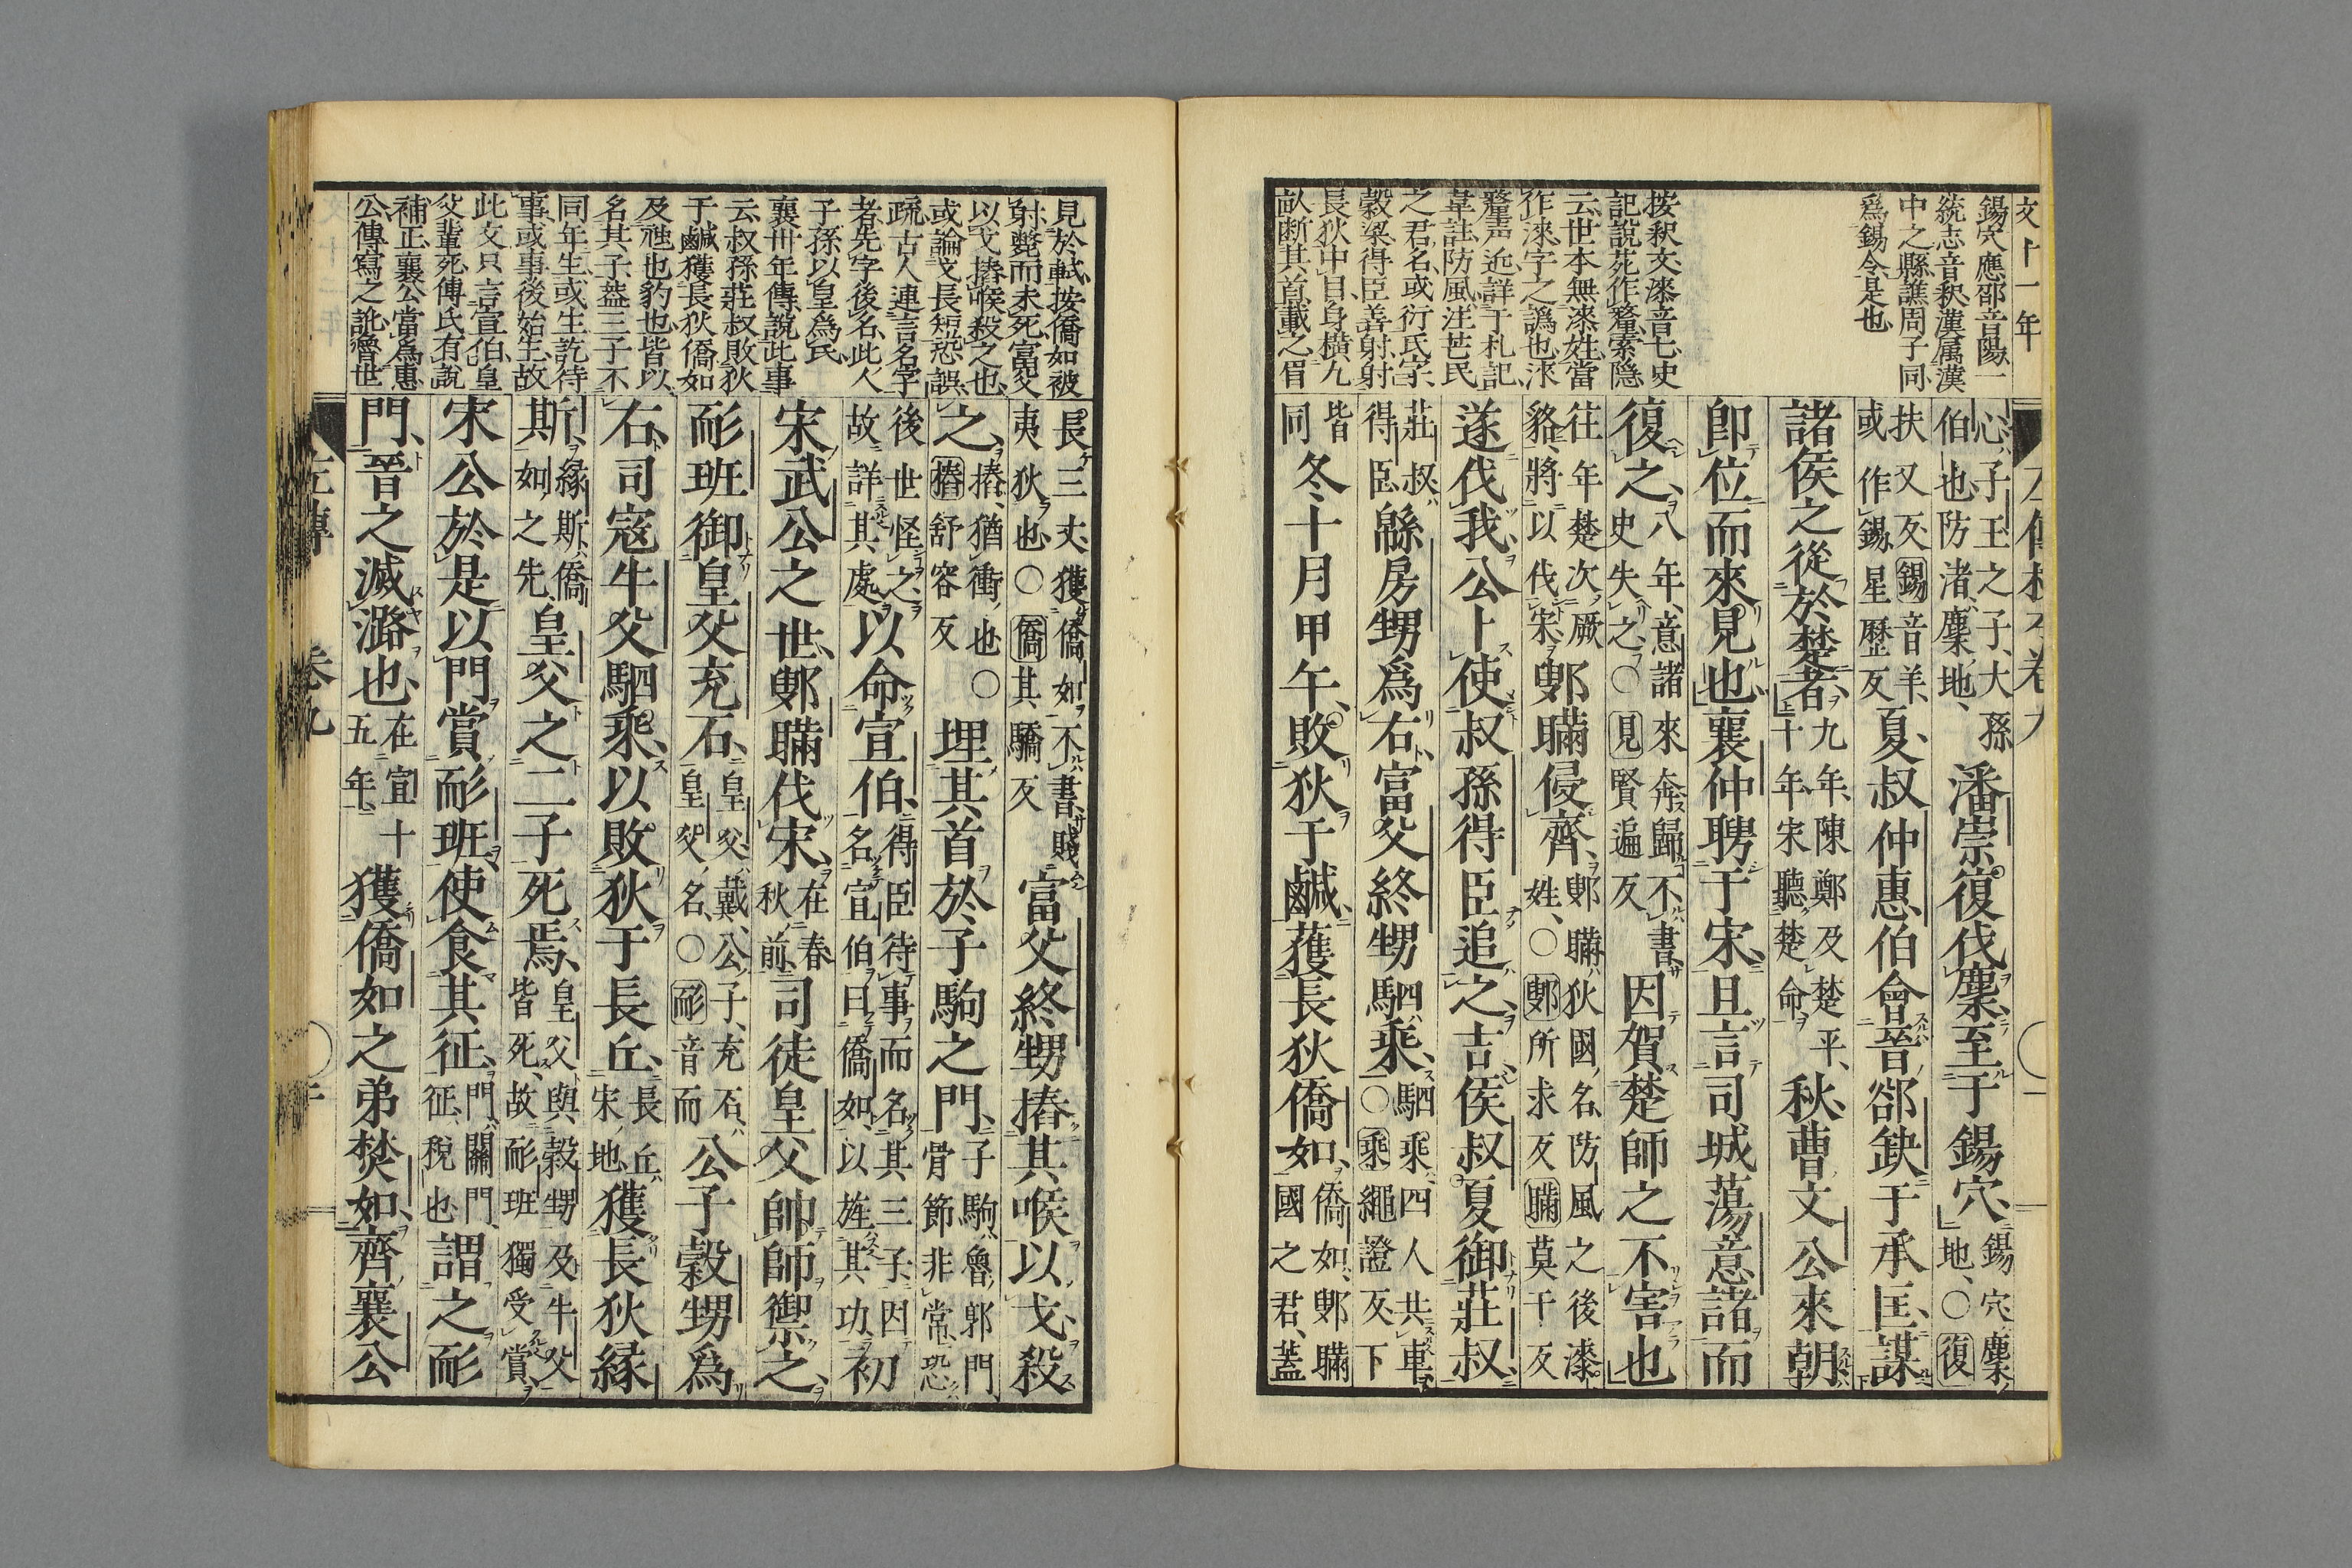 文十一年
錫穴應邵音陽一
統志音釈漢属漢
中之縣譙周子同
爲錫令是也
按釈文漆音七史
記說苑作釐索隠
云世本無漆姓當
作淶字之譌也淶
釐声近詳于札記
韋註防風汪芒氏
之君名或行氏字
穀梁得臣善射射
長狄中目身橫九
畝断其首載之眉
心子玉之子大孫伯也防渚麇地潘崇復伐麇至于錫穴錫穴麇地○復
扶又反錫音羊或作錫星歷反夏叔仲惠伯會晉郤缺于承匡謀
諸侯之從於楚者九年陳鄭及楚平十年宋聽楚命秋曹文公來朝
卽位而來見也襄仲聘于宋且言司城蕩意諸而
復之八年意諸來奔歸不書史失之○見賢遍反因賀楚師之不害也
往年楚次厥貉將以伐宋鄋瞞侵齊鄋瞞狄國名防風之後漆姓○鄋所求反瞞莫干反
遂伐我公卜使叔孫得臣追之吉侯叔夏御莊叔
莊叔得臣緜房甥爲右富父終甥駟乘駟乘四人共車○乘繩證反下
皆同冬十月甲午敗狄于鹹獲長狄僑如僑如鄋瞞國之君蓋
見於軾按僑如被
射斃而未死富父
以戈摏喉殺之也
或論戈長短恐誤
疏古人連言名字
者先字後名此人
子孫以皇爲氏
襄卅年傳說此事
云叔孫莊叔敗狄
于鹹獲長狄僑如
及虺也豹也皆以
名其子蓋三子不
同年生或生訖待
事或事後始生故
此文只言宣伯皇
父輩死傳氏有說
補正襄公當爲惠
公傳寫之訛魯世
長三丈獲僑如不書賤夷狄也○僑其驕反富父終甥摏其喉以戈殺
之摏猶衝也○摏舒容反埋其首於子駒之門子駒魯郭門骨節非常恐
後世怪之故詳其處以命宣伯得臣待事而名其三子因名宣伯曰僑如以旌其功初
宋武公之世鄋瞞伐宋在春秋前司徒皇父帥師禦之
耏班御皇父充石皇父戴公子充石皇父名○耏音而公子穀甥爲
右司寇牛父駟乘以敗狄于長丘長丘宋地獲長狄緣
斯緣斯僑如之先皇父之二子死焉皇父與穀甥及牛父皆死故耏班獨受賞
宋公於是以門賞耏班使食其征門關門征稅也謂之耏
門晉之滅潞也在宣十五年獲僑如之弟焚如齊襄公
左傳 卷九